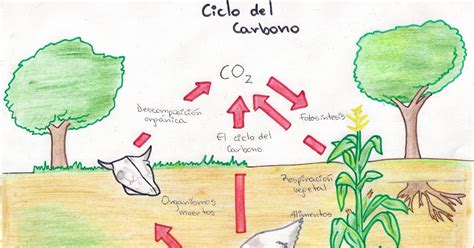 Ciclo del
Carbono
CO2
Descomposición
orgánica
El ciclo del
Carbono
Fotosíntesis
Respiración
vegetal
Organismos
muertos
Alimentos